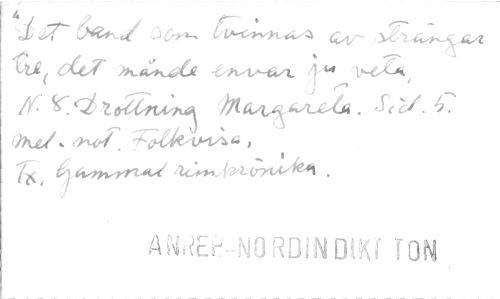 "Det band som tvinnas av strängar
tre, det månde envar ju veta,
N. 8. Drottning Margareta. Sid. 5.
mel. not. Folkvisa.
Tx. Gammal rimkrönika.
ANREP-NORDIN DIKT TON